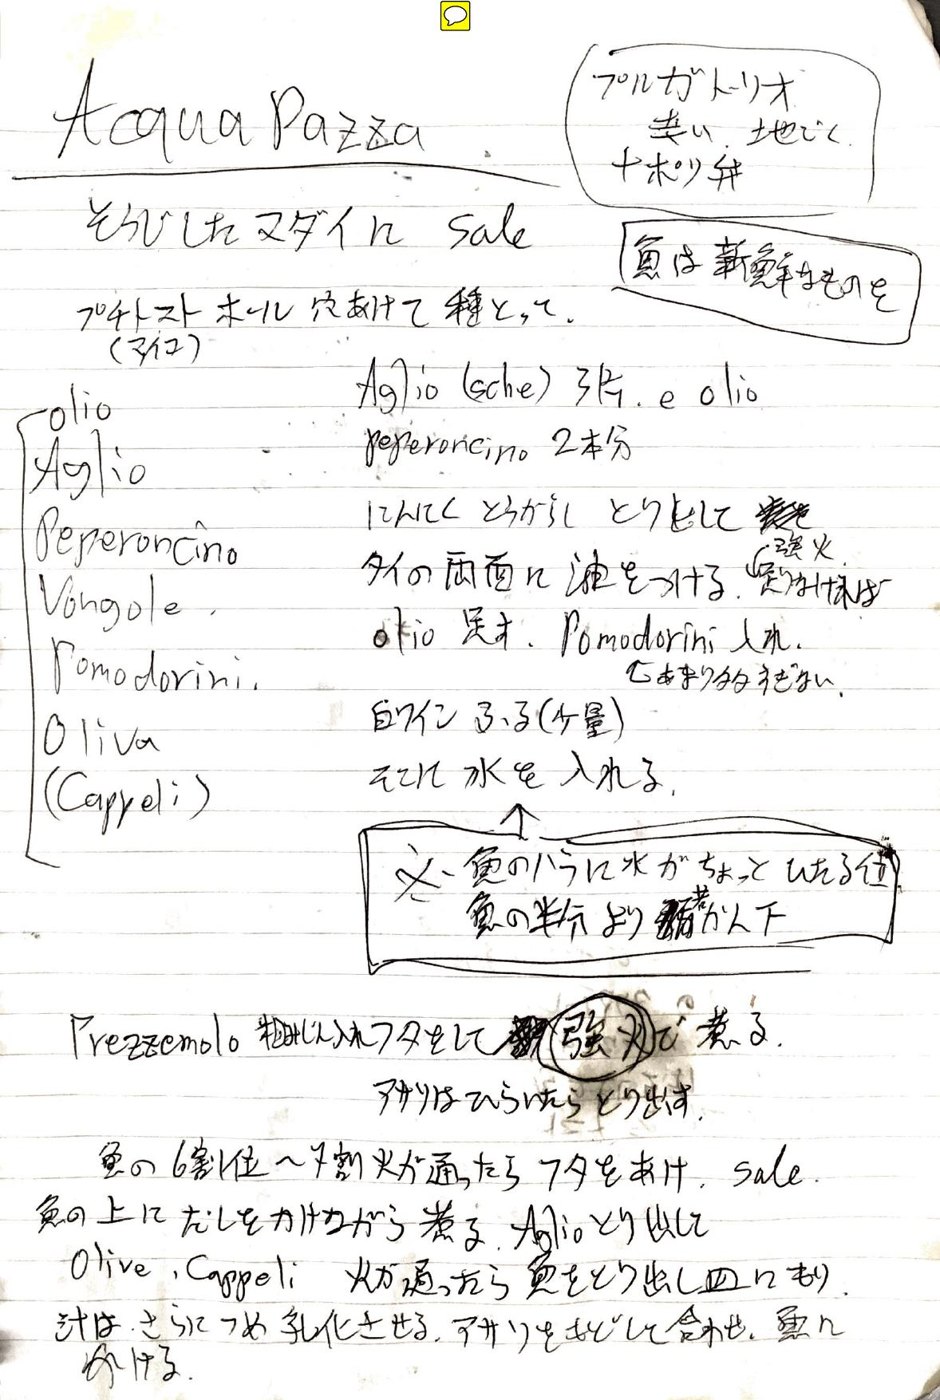 Acqua Pazza
プルガトーリオ
悲い 地ごく
ナポリ弁
そうじしたマダイに sale
魚は新鮮なものを
プチトマト ホール 穴あけて 種とって.
(マイコ)
olio
Aglio
Peperoncino
Vongole.
Pomodorini.
Oliva
(Cappeli)
Aglio (sche) 3片. e olio
peperoncino 2本分
にんにく とうがらし とり出して
強火
タイの両面に油をつける. 足りなければ
olio 足す. Pomodorini 入れ.
あまり多すぎない.
白ワイン ふる(少量)
そこに 水を 入れる.
※魚のハラに水がちょっと ひたる位
魚の半分より 若かん下
Prezzemolo 粗みじん入れフタをして 強火で 煮る.
アサリはひらいたら とり出す.
魚の 6割位〜7割 火が通ったら フタをあけ. sale.
魚の上に だしをかけながら 煮る. Aglioとり出して
Olive, Cappeli 火が通ったら 魚をとり出し皿にもり
汁は さらに つめ 乳化させる. アサリをもどして合わせ. 魚に
かける.